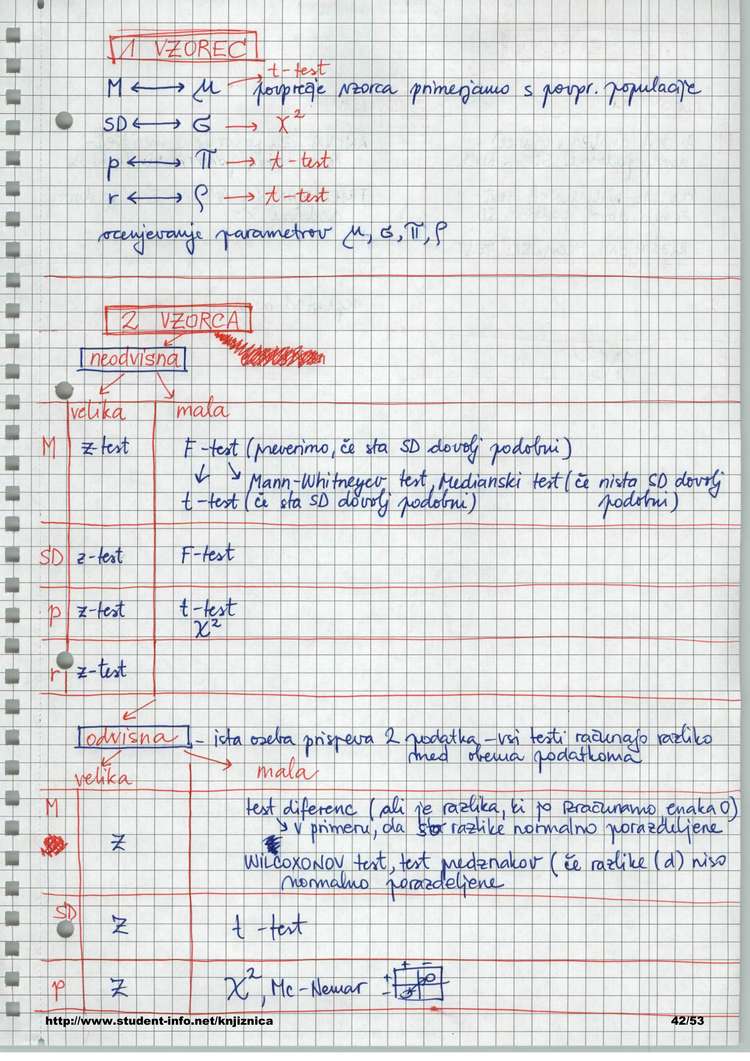 1 VZOREC
t-test
M ↔ μ → povprečje vzorca primerjamo s povpr. populacije
SD ↔ σ → χ²
p ↔ π → t-test
r ↔ ρ → t-test
ocenjevanje parametrov μ, σ, π, ρ
2 VZORCA
neodvisna
velika mala
M z-test F-test (preverimo, če sta SD dovolj podobni)
Mann-Whitneyev test, Medianski test (če nista SD dovolj
t-test (če sta SD dovolj podobni) podobni)
SD z-test F-test
p z-test t-test
χ²
r z-test
odvisna - ista oseba prispeva 2 podatka - vsi testi računajo razliko
med obema podatkoma
velika mala
M test diferenc (ali je razlika, ki jo izračunamo enaka 0)
↘ v primeru, da so razlike normalno porazdeljene
z
WILCOXONOV test, test predznakov (če razlike (d) niso
normalno porazdeljene
SD z t-test
p z χ², Mc-Nemar
+ -
+
-
http://www.student-info.net/knjiznica 42/53